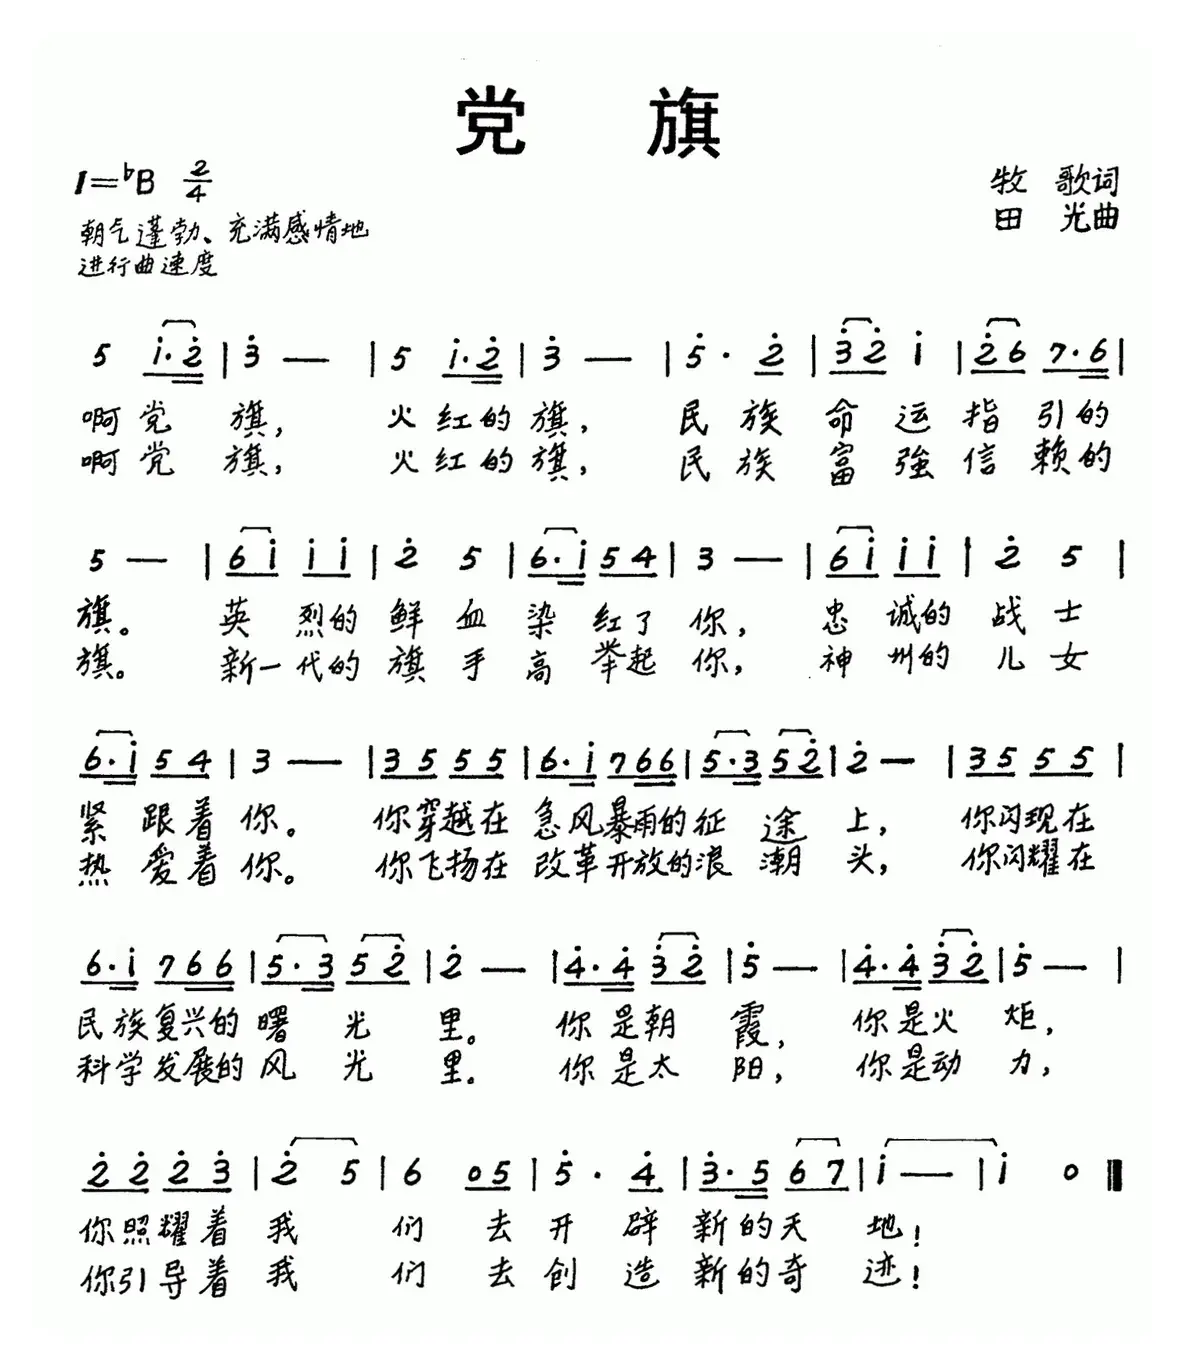 党 旗
1=♭B 2/4
牧 歌词
朝气蓬勃、充满感情地
田 光曲
进行曲速度
5 i·2̇ | 3̇ — | 5 i·2̇ | 3̇ — | 5̇· 2̇ | 3̇2̇ i | 2̇6 7·6 |
啊党 旗， 火红的旗， 民族命运指引的
啊党 旗， 火红的旗， 民族富強信赖的
5 — | 6i ii | 2̇ 5 | 6·i 54 | 3 — | 6i ii | 2̇ 5 |
旗。 英 烈的 鲜 血 染 红了 你， 忠 诚的 战 士
旗。 新一代的 旗 手 高 举起 你， 神 州的 儿 女
6·i 54 | 3 — | 35 55 | 6·i 766 | 5·3 52̇ | 2̇ — | 35 55 |
紧 跟着 你。 你穿越在 急风暴雨的征 途 上， 你闪现在
热 爱着 你。 你飞扬在 改革开放的浪 潮 头， 你闪耀在
6·i 766 | 5·3 52̇ | 2̇ — | 4̇·4̇ 3̇2̇ | 5̇ — | 4̇·4̇ 3̇2̇ | 5̇ — |
民族复兴的曙 光 里。 你是朝 霞， 你是火 炬，
科学发展的风 光 里。 你是太 阳， 你是动 力，
2̇2̇ 2̇3̇ | 2̇ 5 | 6 05 | 5̇· 4̇ | 3̇·5 67 | i — | i 0 ‖
你照耀着 我 们 去 开 辟 新的天 地！
你引导着 我 们 去 创 造 新的奇 迹！